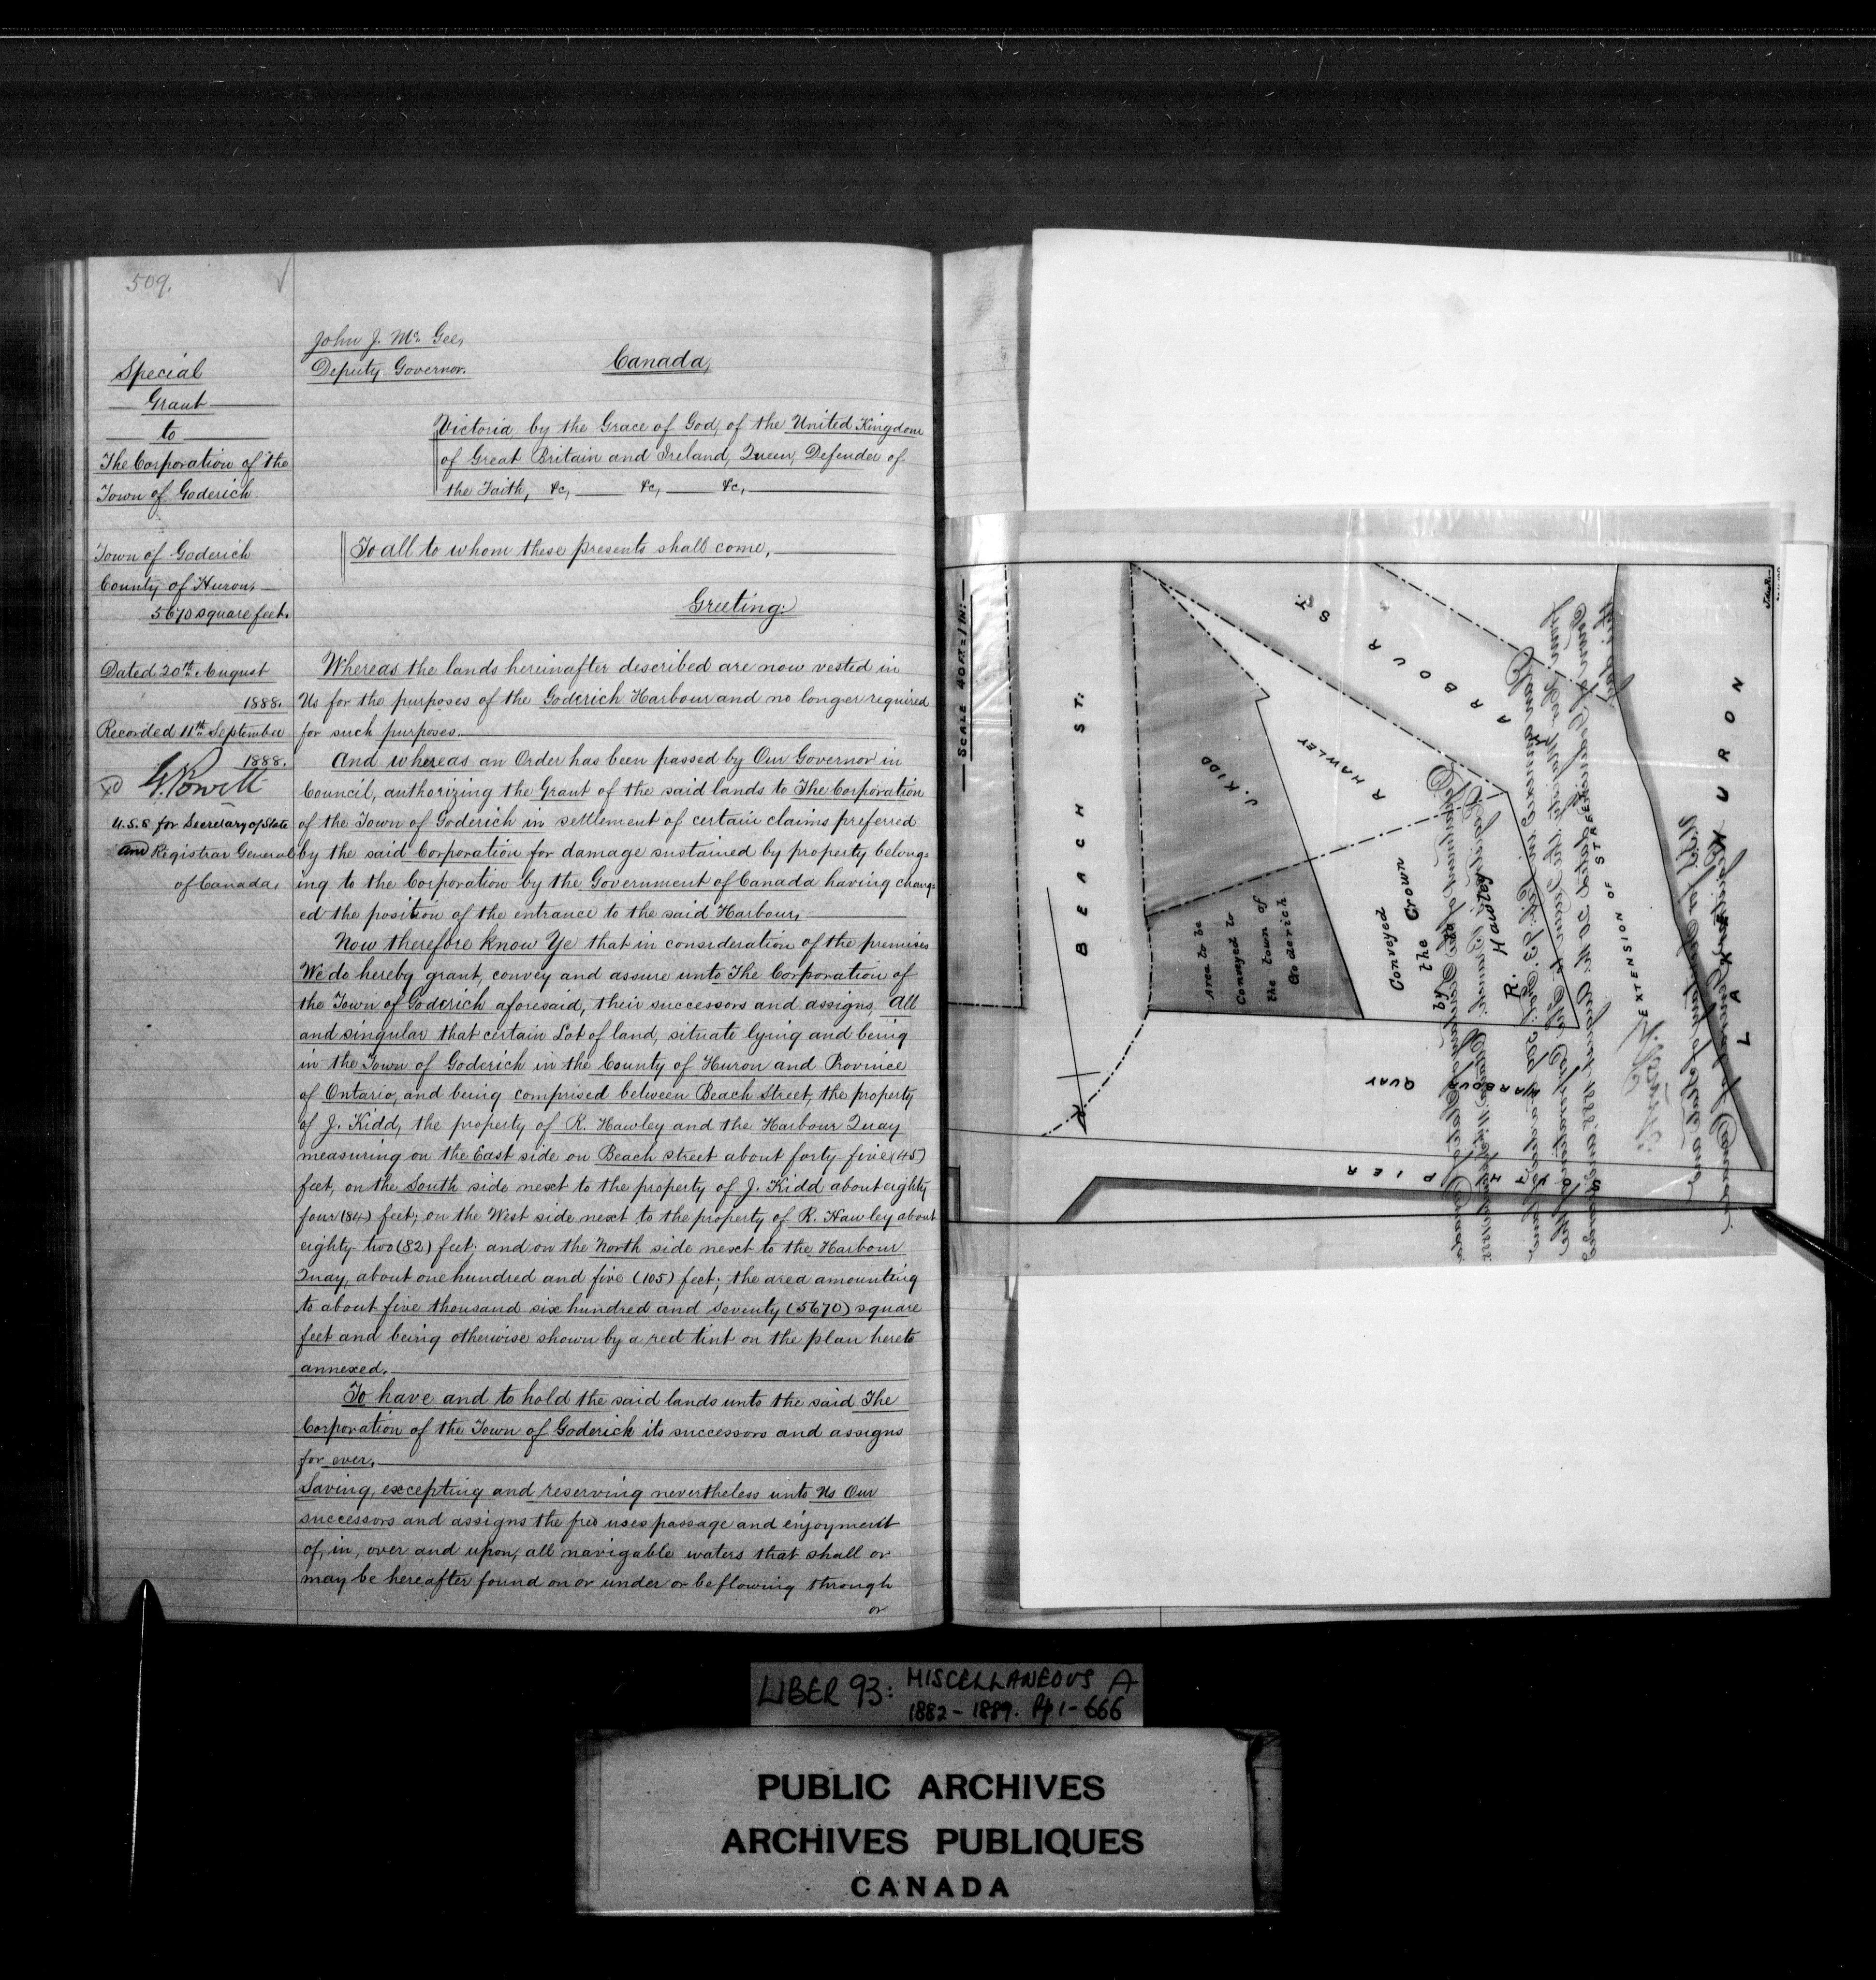 509.
Special
Grant
to
The Corporation of the
Town of Goderich.
Town of Goderich
County of Huron,
5670 square feet.
Dated 20th August
1888.
Recorded 11th September
1888.
G. Powell
U.S.S for Secretary of State
and Registrar General
of Canada,
John J. McGee,
Deputy Governor.
Canada,
Victoria by the Grace of God, of the United Kingdom
of Great Britain and Ireland, Queen, Defender of
the Faith, &c, &c, &c,
To all to whom these presents shall come,
Greeting:
Whereas the lands hereinafter described are now vested in
Us for the purposes of the Goderich Harbour and no longer required
for such purposes.
And whereas an Order has been passed by Our Governor in
Council, authorizing the Grant of the said lands to The Corporation
of the Town of Goderich in settlement of certain claims preferred
by the said Corporation for damage sustained by property belong-
ing to the Corporation by the Government of Canada having chang-
ed the position of the entrance to the said Harbour,
Now therefore know Ye that in consideration of the premises
We do hereby grant, convey and assure unto The Corporation of
the Town of Goderich aforesaid, their successors and assigns, All
and singular that certain Lot of land, situate lying and being
in the Town of Goderich in the County of Huron and Province
of Ontario, and being comprised between Beach Street, the property
of J. Kidd, the property of R. Hawley and the Harbour Quay
measuring on the East side on Beach street about forty-five (45)
feet, on the South side next to the property of J. Kidd about eighty
four (84) feet; on the West side next to the property of R. Hawley about
eighty-two (82) feet; and on the North side next to the Harbour
Quay, about one hundred and five (105) feet; the area amounting
to about five thousand six hundred and seventy (5670) square
feet and being otherwise shown by a red tint on the plan hereto
annexed.
To have and to hold the said lands unto the said The
Corporation of the Town of Goderich its successors and assigns
for ever.
Saving, excepting and reserving nevertheless unto Us Our
successors and assigns the free uses passage and enjoyment
of, in, over and upon, all navigable waters that shall or
may be hereafter found on or under or be flowing through
or
SCALE 40 FT = 1 IN:
BEACH ST:
J. KIDD
R HAWLEY
HARBOUR ST.
Area to be
Conveyed to
the town of
Goderich
Conveyed
by the Crown
to
R. Hawley
EXTENSION OF STREET
HARBOUR QUAY
SOUTH PIER
LAKE HURON
N
LIBER 93: MISCELLANEOUS A
1882-1889. Pp 1-666
PUBLIC ARCHIVES
ARCHIVES PUBLIQUES
CANADA